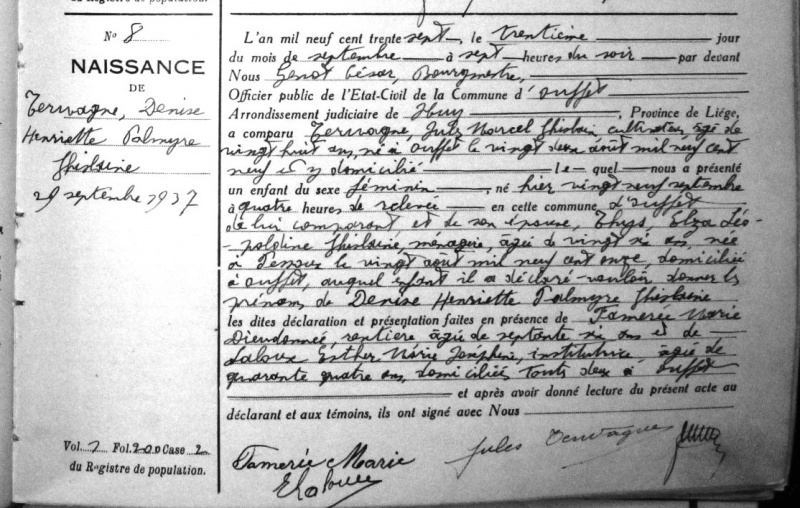 du Registre de population.
N° 8
NAISSANCE
DE
Terwagne, Denise
Henriette Palmyre
Ghislaine
29 septembre 1937
Vol. 7 Fol. 200 Case 2
du Registre de population.
L'an mil neuf cent trente sept, le trentième jour
du mois de septembre à sept heures du soir par devant
Nous Genot César, Bourgmestre,
Officier public de l'Etat-Civil de la Commune d'Ouffet
Arrondissement judiciaire de Huy, Province de Liége,
a comparu Terwagne, Jules Marcel Ghislain, cultivateur, âgé de
vingt huit ans, né à Ouffet le vingt deux août mil neuf cent
neuf et y domicilié lequel nous a présenté
un enfant du sexe féminin, né hier vingt neuf septembre
à quatre heures de relevée en cette commune d'Ouffet
de lui comparant et de son épouse, Thys Elza Léo-
-poldine Ghislaine, ménagère, âgée de vingt six ans, née
à le vingt août mil neuf cent onze, domiciliée
à Ouffet, auquel enfant il a déclaré vouloir donner les
prénoms de Denise Henriette Palmyre Ghislaine
les dites déclaration et présentation faites en présence de Tamerée Marie
Dieudonnée, rentière âgée de septante six ans et de
Laloux Esther Marie Josephine, institutrice, âgée de
quarante quatre ans, domiciliés tous deux à Ouffet
et après avoir donné lecture du présent acte au
déclarant et aux témoins, ils ont signé avec Nous
Tamerée Marie
Jules Terwagne
E Laloux